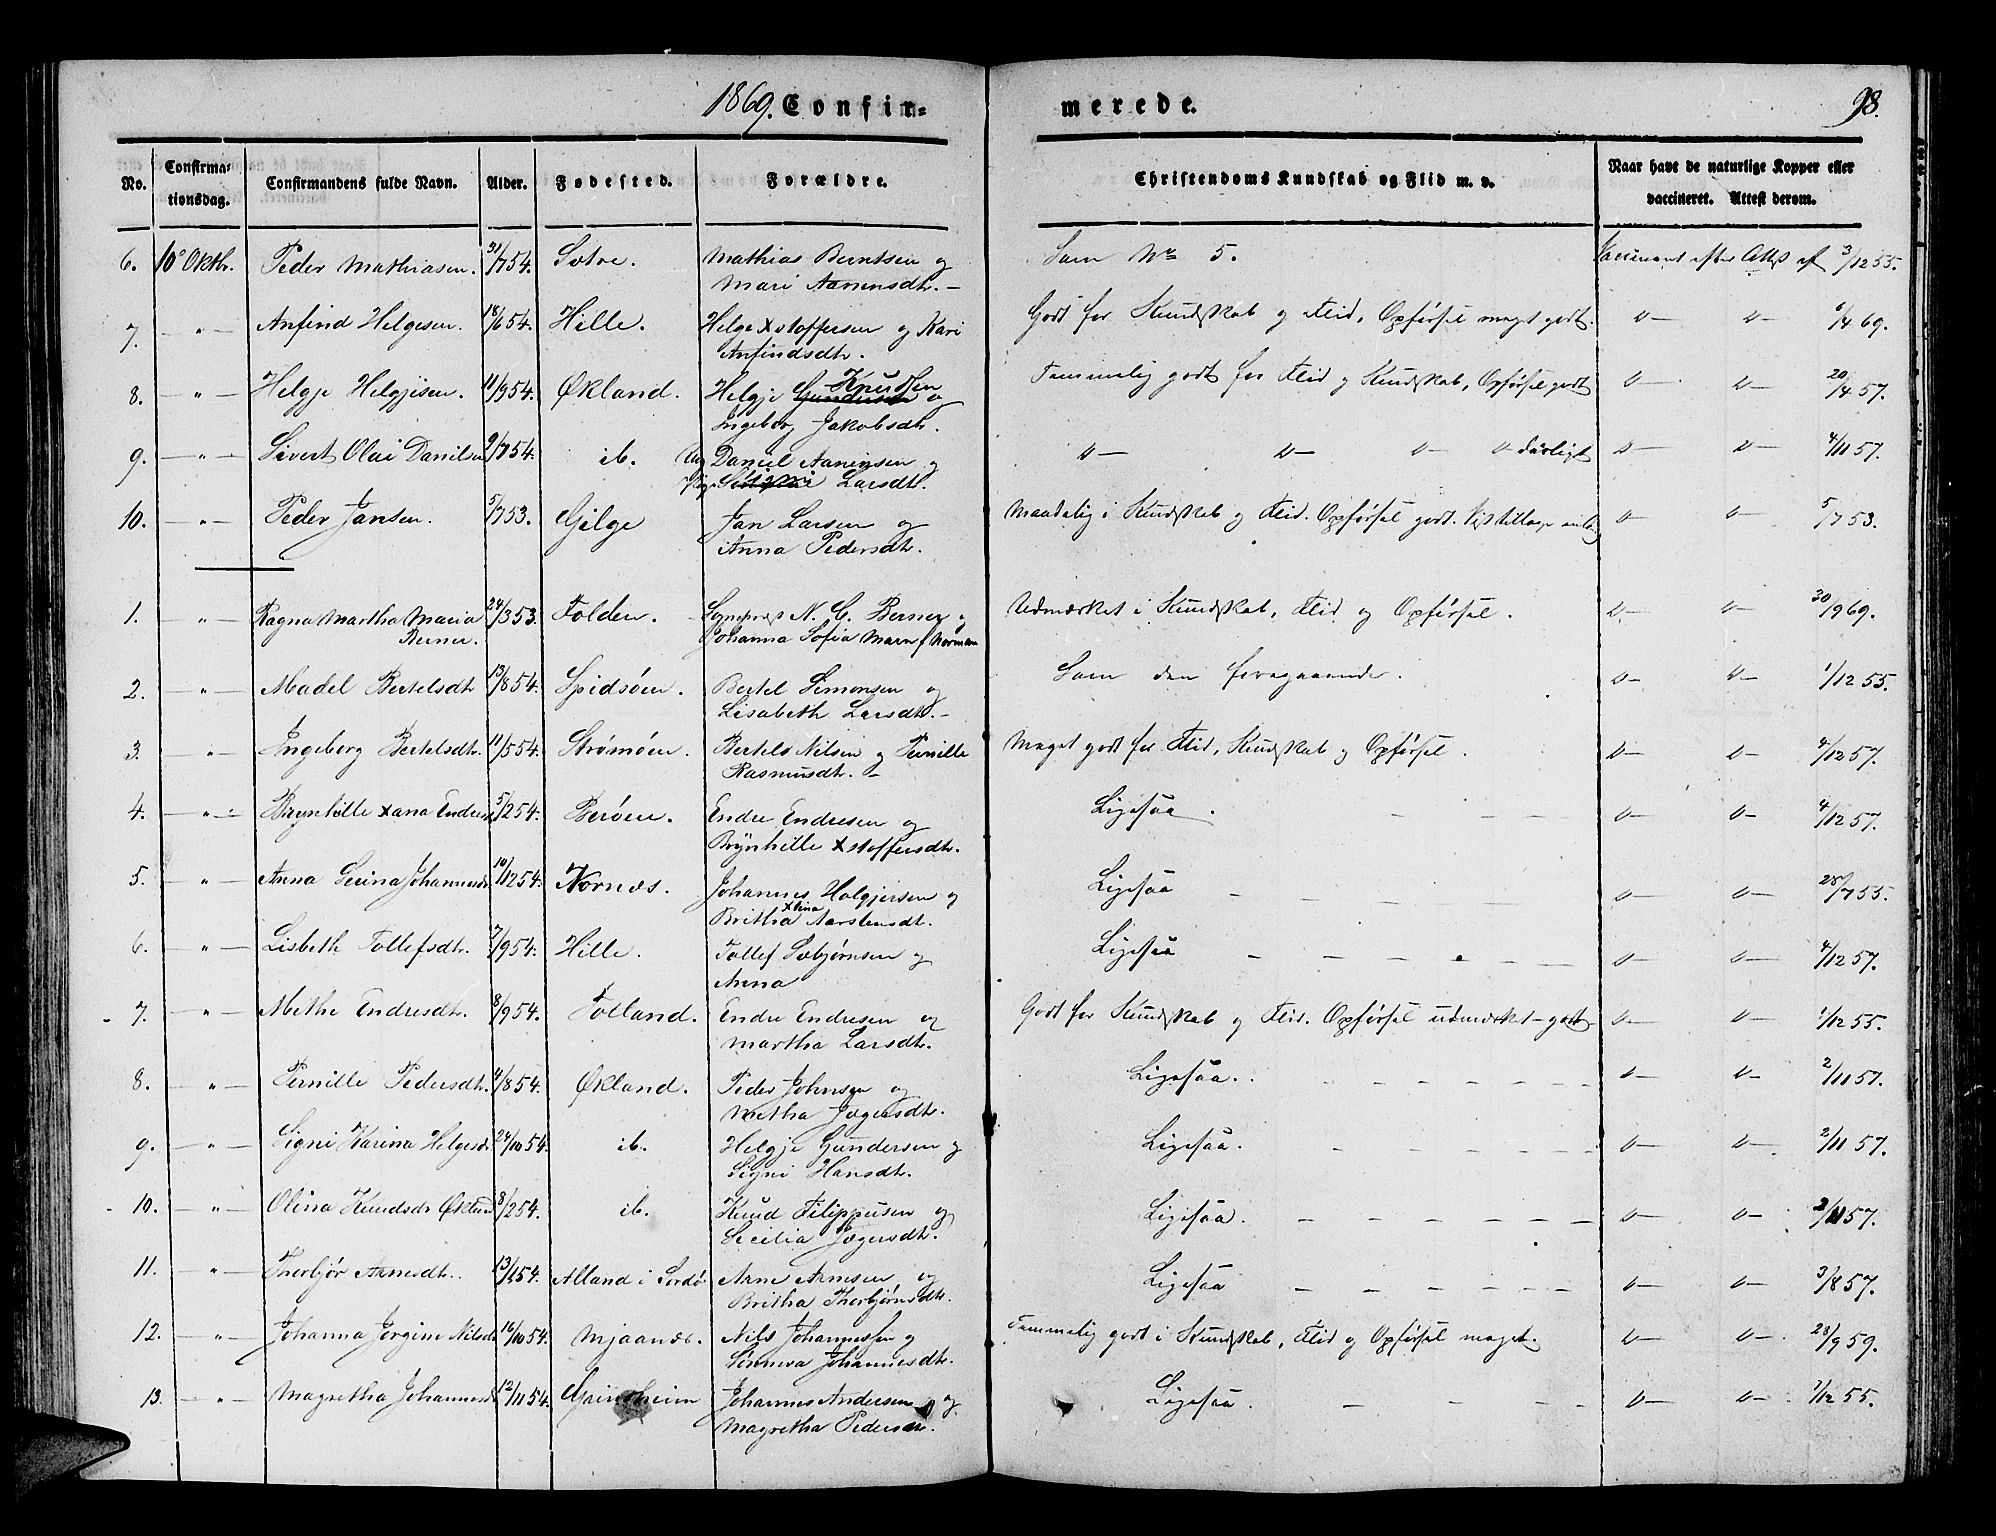 1869. Confir= merede. 98.
No. Confirma-tionsdag. Confirmandens fulde Navn. Alder. Fødested. Forældre. Christendoms Kundskab og Flid m. v. Naar have de naturlige Kopper eller vaccineret. Attest derom.
6. 10º Oktbr. Peder Mathiasen. 31/7 54. Sætre. Mathias Berntsen og Som No 5. Vaccineret efter Attest af 3/12 55.
Mari Aanensdtr. —
7. — " — Anfind Helgesen. 18/6 54. Hille. Helge Xstoffersen og Kari Godt for Kundskab og Flid, Opførsel meget godt. " — " — 6/4 69.
Anfindsdtr.
8. — " — Helgje Helgjesen. 11/9 54. Økland. Helgje Gundersen Knudsen og Temmelig godt for Flid og Kundskab, Opførsel godt " — " — 20/4 57.
Ingeborg Jakobsdtr.
9. — " — Sivert Olai Danilsen 9/7 54. ib. Ung Daniel Aanensen og " — " — " — " dårligt " — " — 4/11 57.
Larsdtr.
10. — " — Peder Jansen. 5/7 53. Gilge Jan Larsen og Maadelig i Kundskab og Flid. Opførsel godt. " — " — 5/7 53.
Anna Pedersdtr.
1. — " — Ragna Martha Maria 24/3 53. Folden. Sognepræst N. C. Berner og Udmærket i Kundskab, Flid og Opførsel. " — " — 30/9 69.
Berner. Johanna Sofia Marn f. Norman
2. — " — Madel Bertelsdtr 13/8 54. Spidsøen. Bertel Simonsen og Som den foregaaende. " — " — 1/12 55.
Lisabeth Larsdtr. —
3. " — Ingeborg Bertelsdtr. 11/5 54. Strømøen. Bertels Nilsen og Pernille Meget godt for Flid, Kundskab og Opførsel. " — " — 4/12 57.
Rasmusdtr. —
4. — " — Brynhille Xana Endresd 5/2 54. Berøen. Endre Endresen og Ligesaa. — — — — " — " — 4/12 57.
Brynhille Xstoffersdtr.
5. — " — Anna Serina Johannesdr 10/12 54. Nornæs. Johannes Holgjersen og Ligesaa — — — — " — " — 28/7 55.
Britha Xtina Aarstensdtr.
6. — " — Lisbeth Tollefsdtr. 7/9 54. Hille. Tollef Sæbjørnsen og Ligesaa — — — — " — " — 4/12 57.
Anna
7. — " — Methe Endresdtr. 8/9 54. Tolland. Endre Endresen og Godt for Kundskab og Flid. Opførsel udmærket-godt " — " — 1/12 55.
Martha Larsdtr.
8. — " — Pernille Pedersdtr. 4/8 54. Økland. Peder Johnsen og Ligesaa. — — — — " — " — 2/11 57.
Metha Jægersdtr.
9. — " — Signi Karina Helgesdr 24/10 54. ib. Helgje Gundersen og Ligesaa. — — — — " — " — 2/11 57.
Signi Hansdtr.
10. — " — Olina Knudsdr Økland 8/2 54. ib. Knud Filippusen og Ligesaa. — — — — " — " — 2/11 57.
Sicilia Jægersdtr.
11. — " — Thorbjør Arnesdtr. 13/1 54. Alland i Sordø Arne Arnesen og Ligesaa — — — — " — " — 3/8 57.
Britha Thorbjørnsdtr.
12. — " — Johanna Jørgine Nilsdr 16/10 54. Mjaanæs. Nils Johannessen og Temmelig godt i Kundskab, Flid og Opførsel meget. " — " — 28/9 59.
Sønneva Johannesdtr.
13. — " — Magretha Johannesdr 12/11 54. Grindheim Johannes Andersen og Ligesaa. — — — — " — " — 1/12 55.
Magretha Pedersdr.